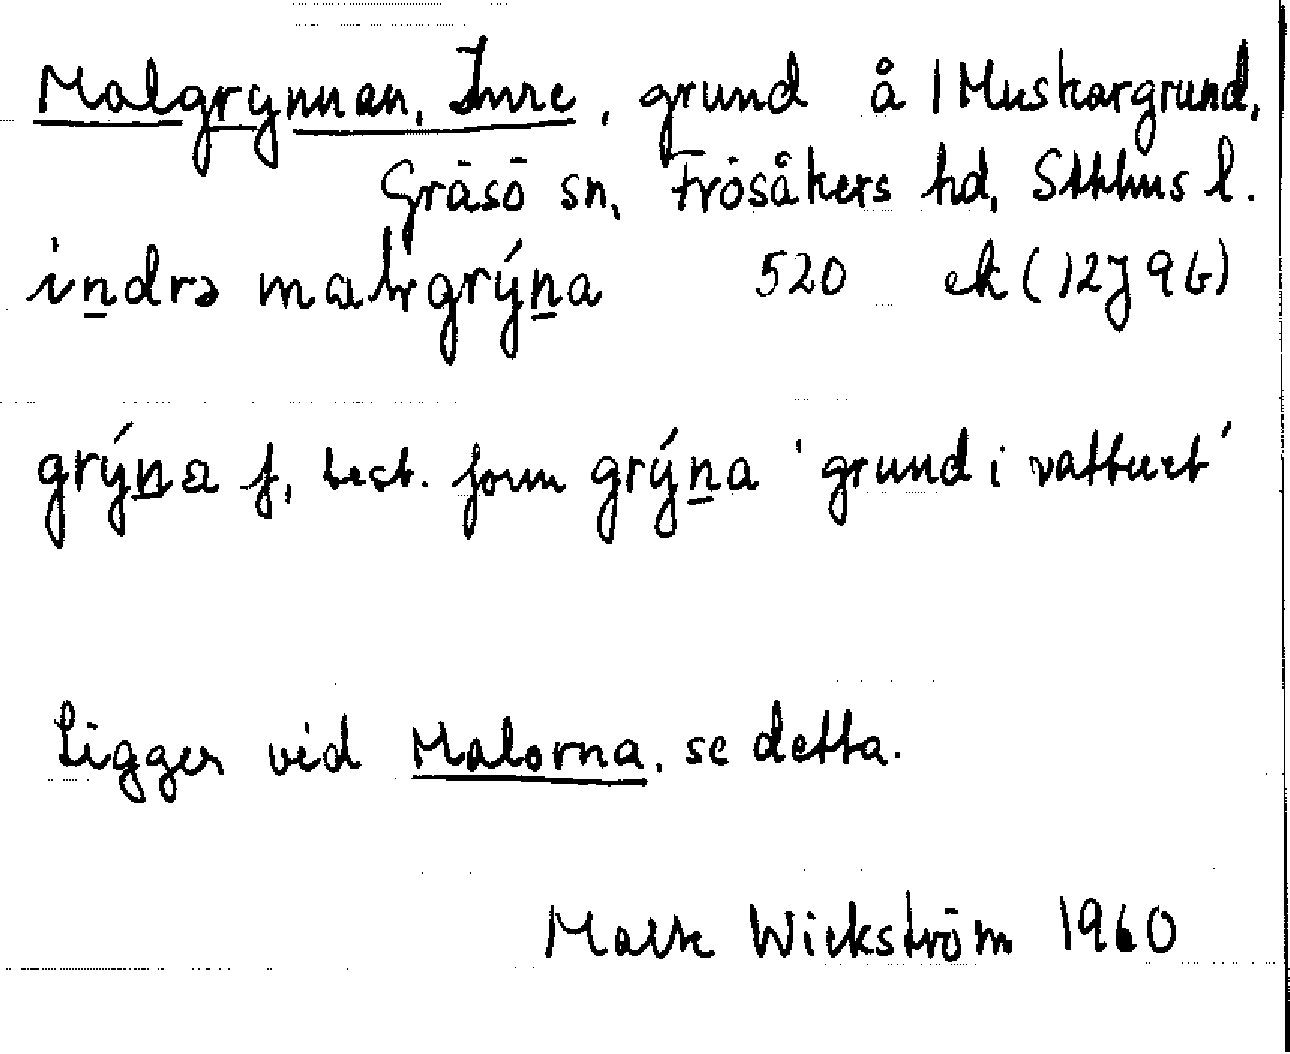 Malgrynnan, Inre, grund å 1 Muskargrund,
Gräsö sn, Frösåkers hd, Sthlms l.
indrə grýn̲a 520 ek (12J 9b)
grýn̲a f, best. form grýn̲a 'grund i vattnet'
Ligger vid Malorna, se detta.
Wickström 1960